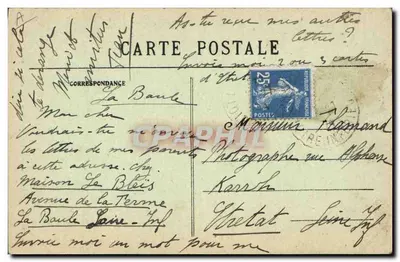 As-tu reçu mes autres
lettres ?
CARTE POSTALE
Envoie moi 2 ou 3 cartes
d'Etretat
CORRESPONDANCE
La Baule
25
POSTES
Mon cher
Voudrais-tu
les lettres de mes parents
à cette adresse. chez
Maison Le Bleis
Avenue de la Ferme
La Baule Loire-Inf
Envoie moi un mot pour me
dire si cela
Jean
Monsieur Flamand
Photographe rue Alphonse
Karr
Etretat Seine Inf
CPAPHIL